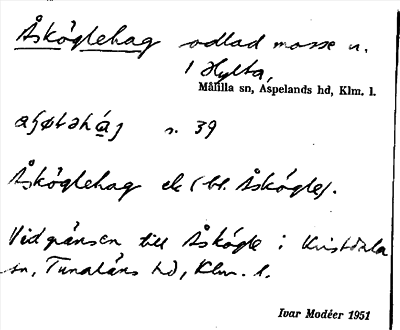 Åsköglehag odlad mosse u.
1 Hylta,
Målilla sn, Aspelands hd, Klm. l.
s. 39
Åsköglehag ek (bl. Åskögle).
Vid gränsen till Åskögle i Kristdala
sn, Tunaläns hd, Klm. l.
Ivar Modéer 1951